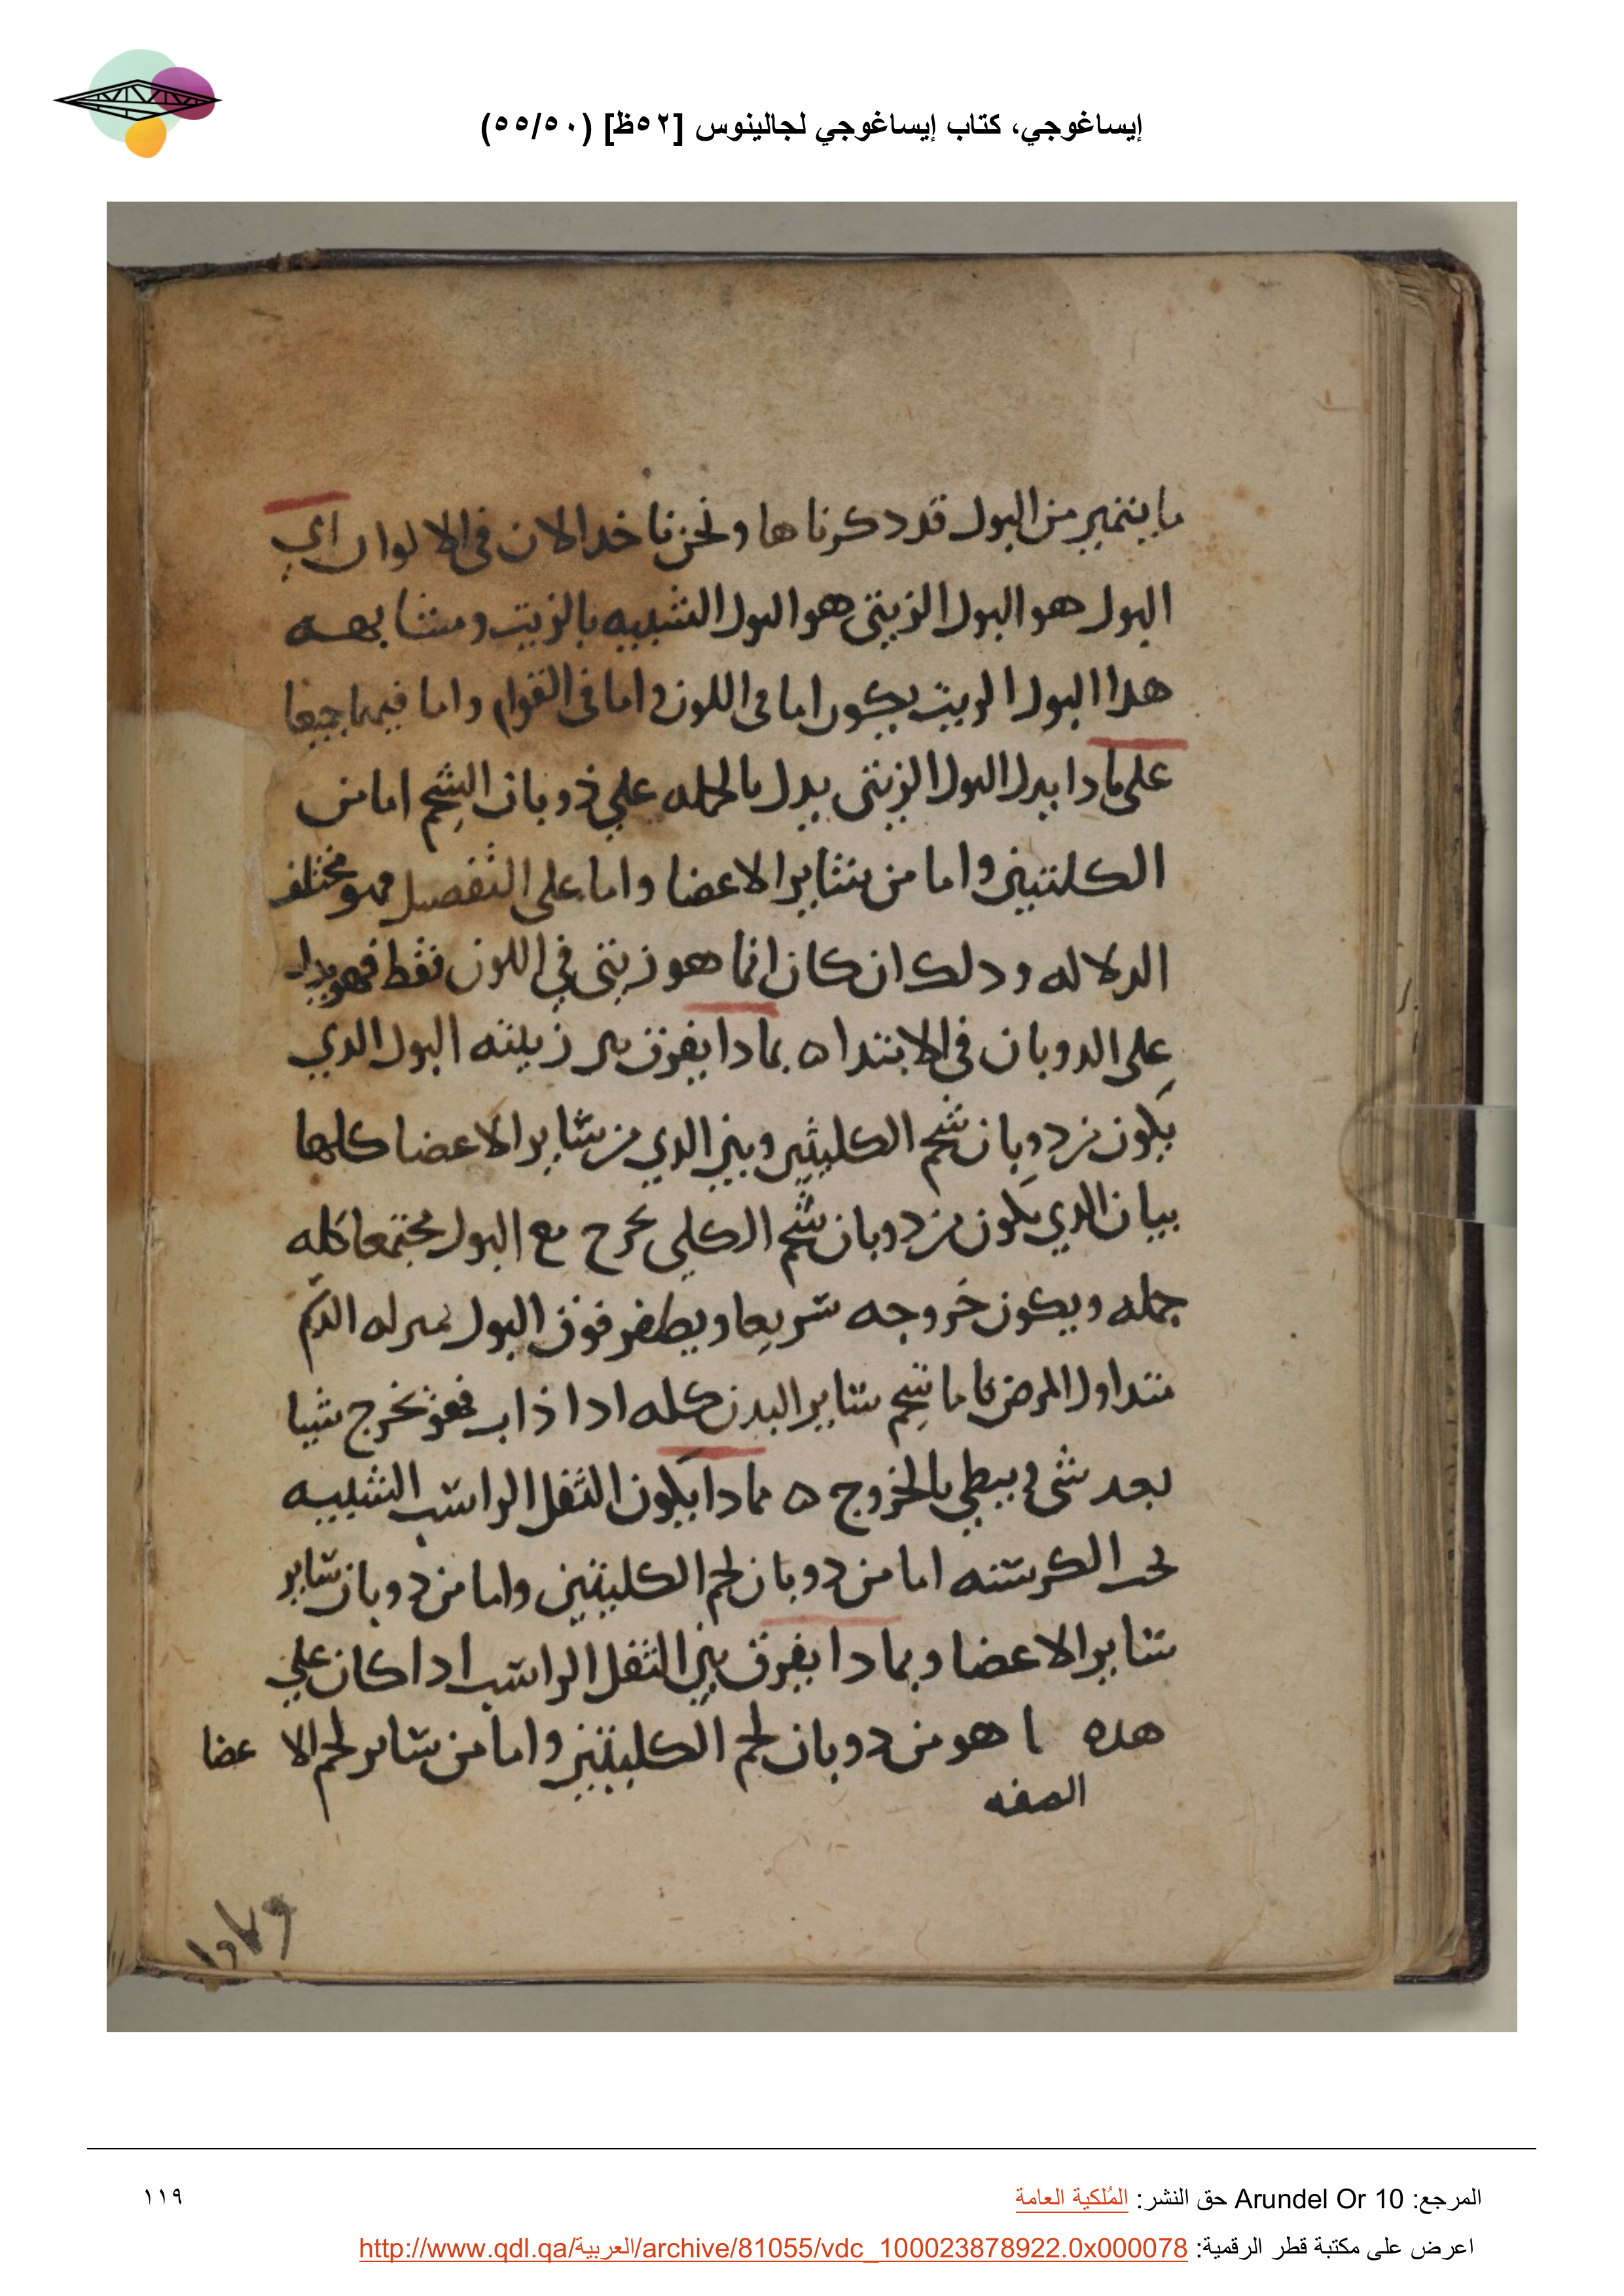 إيساغوجي، كتاب إيساغوجي لجالينوس [٥٢ظ] (٥٥/٥٠)
ما يتميز من البول قد دكرناها ونحن ناخد الان في الالوان اي
البول هو البول الزيتي هو البول الشبيه بالزيت ومشابهه
هدا البول الزيت يكون اما في اللون واما في القوام واما فيهما جميعا
على مادا يدل البول الزيتي يدل بالجمله علي ذوبان الشحم اما من
الكلتين واما من ساير الاعضا واما على التفصيل فهو مختلف
الدلاله ودلك ان كان انما هو زيتي في اللون فقط فهو يدل
على الدوبان في الابتدا ه بمادا يفرق بين زيتيه البول الدي
يكون من دوبان شحم الكليتين وبين الدي من ساير الاعضا كلها
بيان الدي يكون من دوبان شحم الكلي يخرج مع البول مجتمعا كله
جمله ويكون خروجه سريعا ويطفر فوق البول بمنزله الدم
منداول المرض فاما شحم ساير البدن كله ادا ذاب فهو يخرج شيا
بعد شي ويبطي بالخروج ه مادا يكون الثفل الراسب الشبيه
بحب الكرسنه اما من دوبان لحم الكليتين واما من دوبان ساير
ساير الاعضا وبمادا يفرق بين الثفل الراسب ادا كان علي
هده ا هو من دوبان لحم الكليتين واما من ساير لحم الا عضا
الصفه
المرجع: Arundel Or 10 حق النشر: المُلكية العامة
١١٩
اعرض على مكتبة قطر الرقمية: http://www.qdl.qa/العربية/archive/81055/vdc_100023878922.0x000078